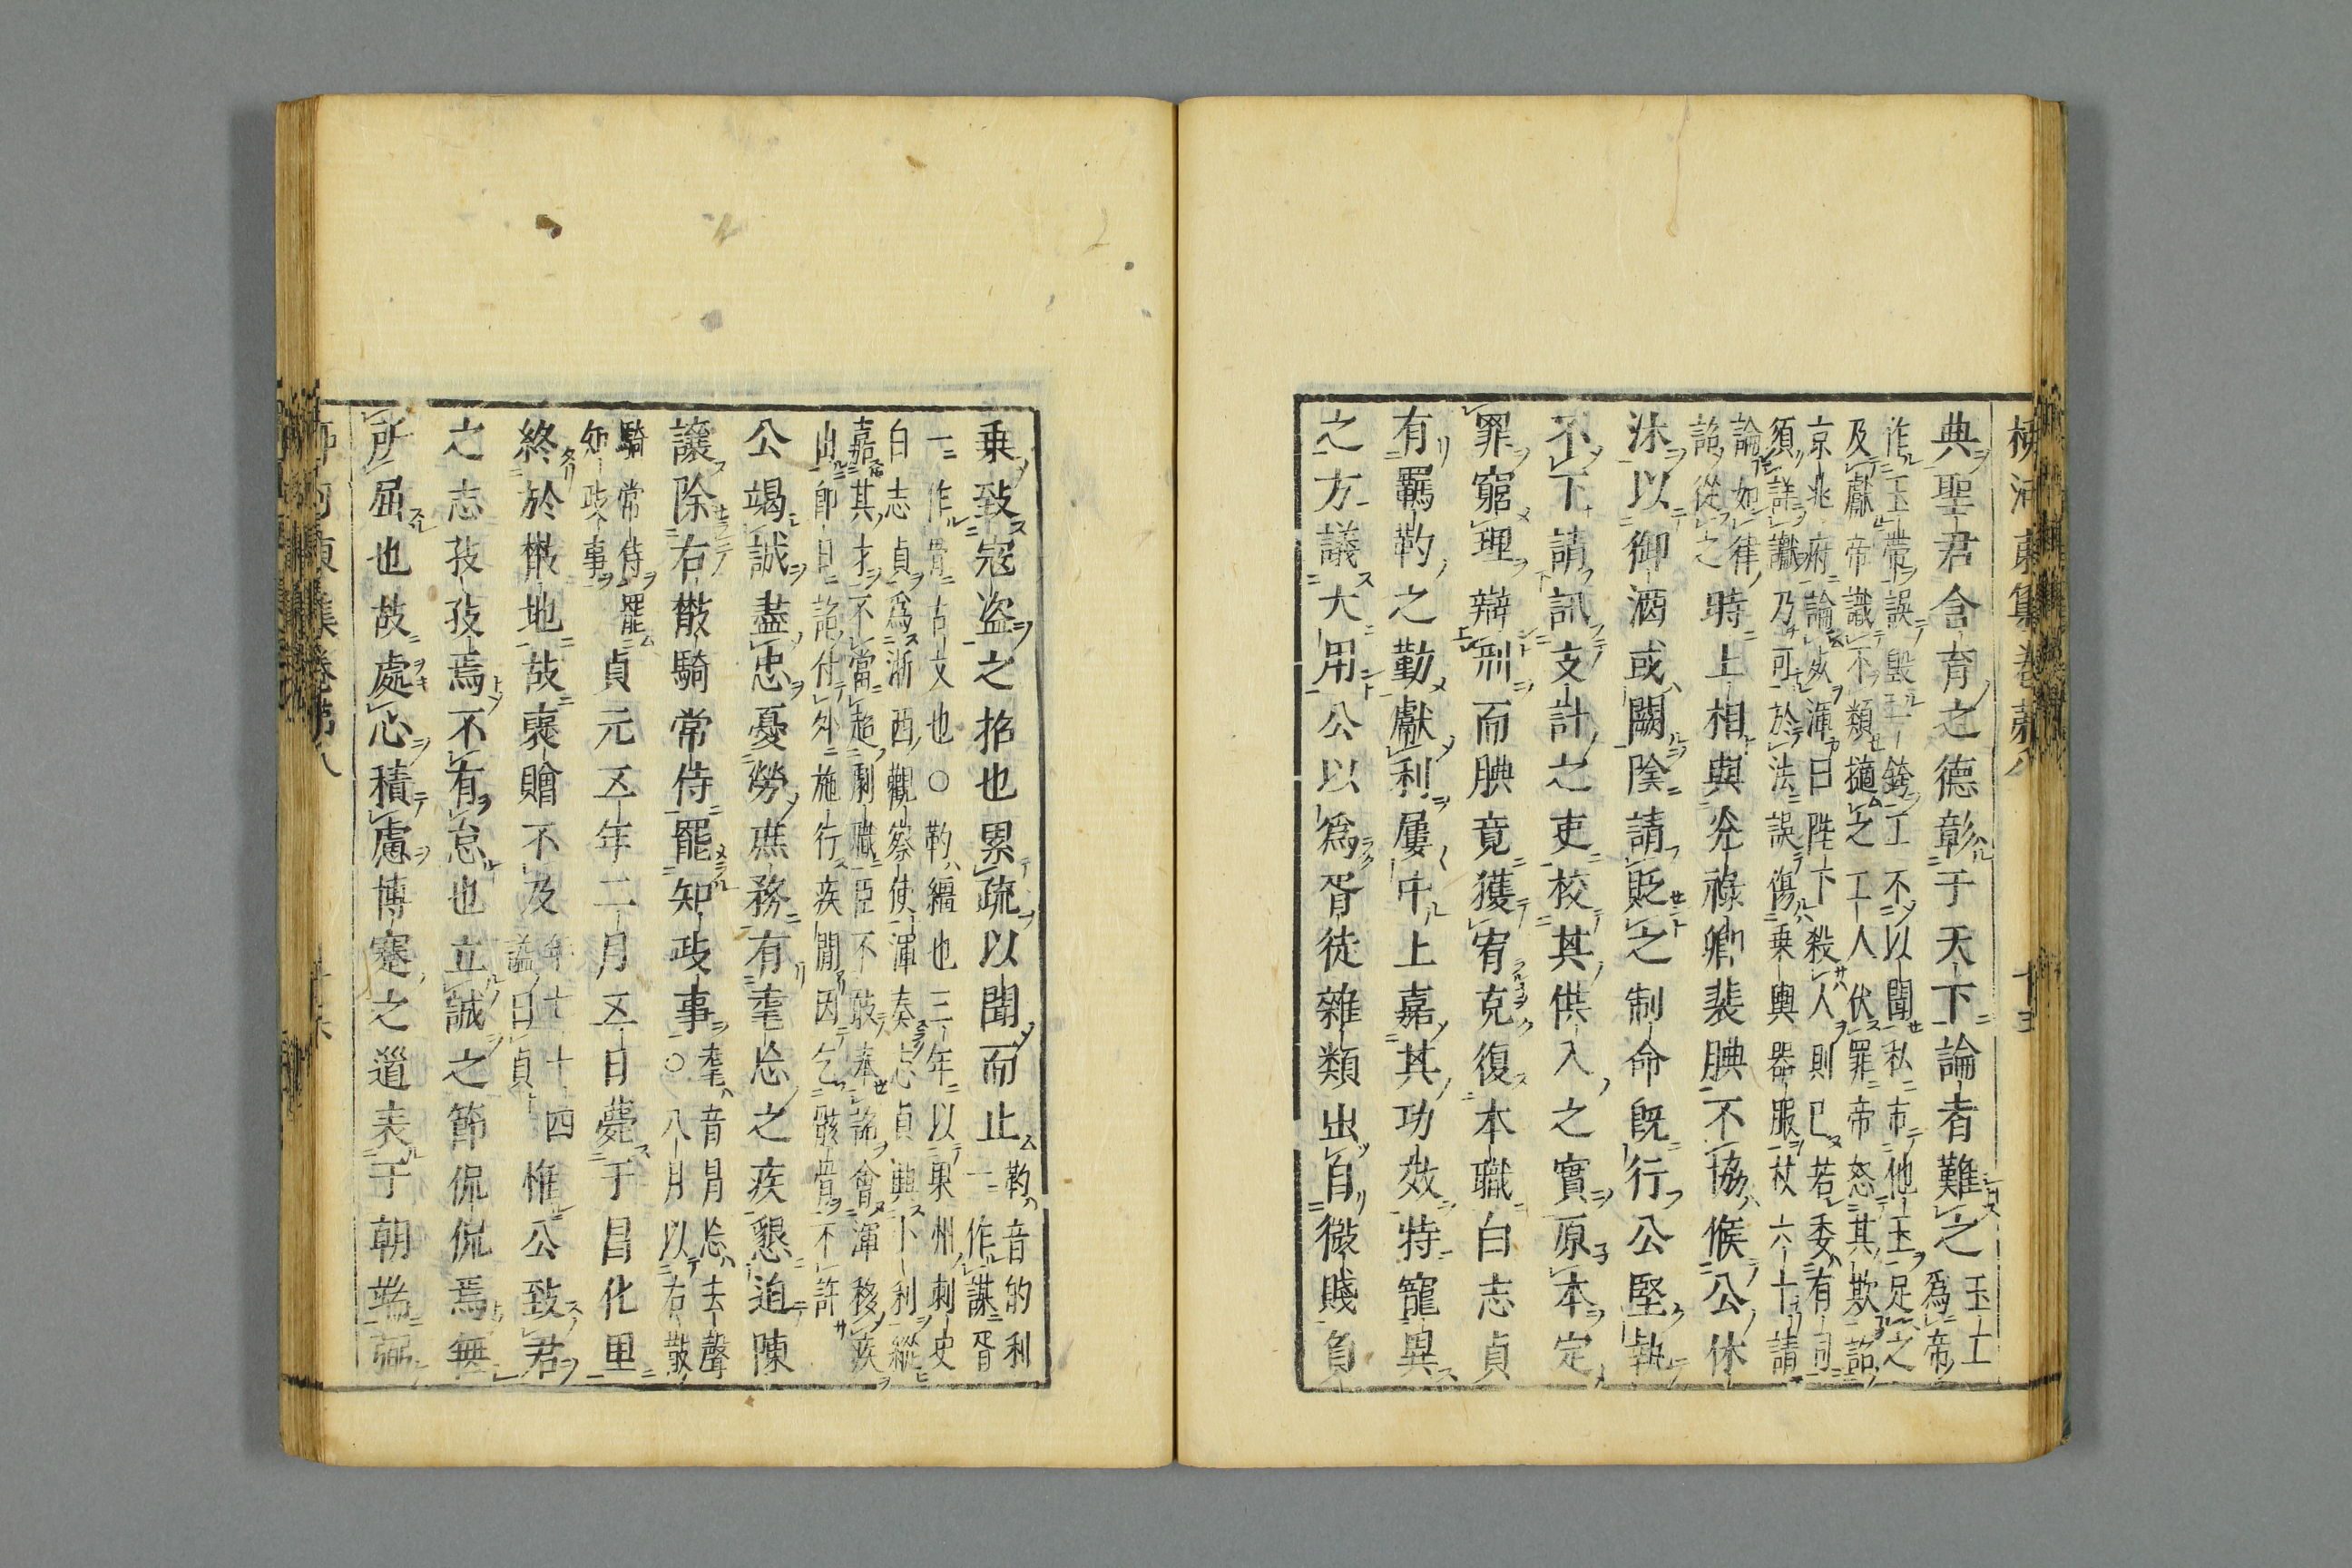 柳河東集卷第八 十三
典聖君含育之德彰于天下論者難之玉工爲帝
作玉帶誤毀一銙工不以聞私市他玉足之
及獻帝識不類擿之工人伏罪帝怒其欺詔
京兆府論死渾曰陛下殺人則已若委有司
須詳讞乃可於法誤傷乘輿器服杖六十請
論如律詔從之
時上相與光祿卿裴腆不協候公休
沐以御酒或闕陰請貶之制命既行公堅執
不下請訊支計之吏校其供入之實原本定
罪窮理辯刑而腆竟獲宥克復本職白志貞
有羈靮之勤獻利屢中上嘉其功效特寵異
之方議大用公以爲胥徒雜類出自微賤負
乘致寇盗之招也累疏以聞而止靮音的利一作謀胥
一作骨古文也○靮韁也三年以果州刺史
白志貞爲浙西觀察使渾奏志貞興小利縱
嘉其才不當超劇職臣不敢奉詔會渾移疾
出即日詔付外施行疾間因乞骸骨不許
公竭誠盡忠憂勞庶務有耄忘之疾懇迫陳
讓除右散騎常侍罷知政事耄音冒忘去聲○八月以右散
騎常侍罷知政事
貞元五年二月五日薨于昌化里
終於散地故襃贈不及年七十四謚曰貞
惟公致君
之志孜孜焉不有怠也立誠之節侃侃焉無
所屈也故處心積慮博蹇之道表于朝端弼
柳河東集卷第八